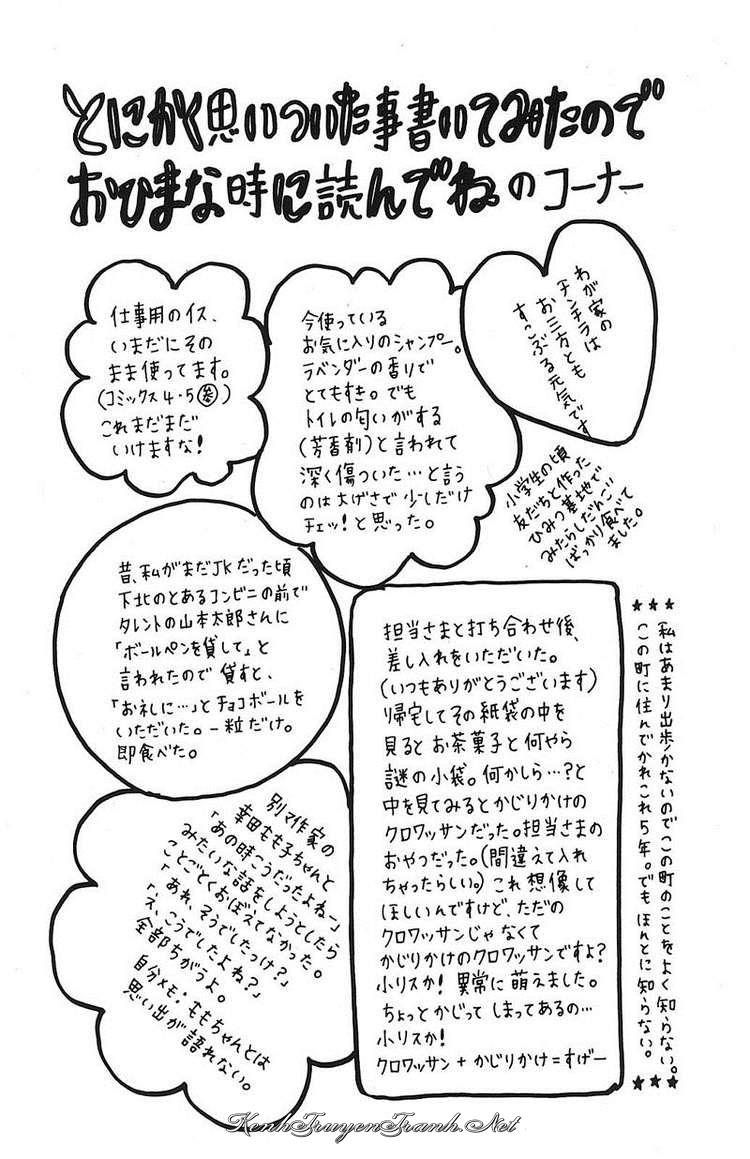 とにかく思いついた事書いてみたので
おひまな時に読んでね。のコーナー
仕事用のイス、
いまだにその
まま使ってます。
(コミックス4・5参)
これまだまだ
いけますな!
今使っている
お気に入りのシャンプー。
ラベンダーの香りで
とてもすき。でも
トイレの匂いがする
(芳香剤)と言われて
深く傷ついた…と言う
のは大げさで少しだけ
チェッ!と思った。
わが家の
チンチラは
お三方とも
すこぶる元気です
小学生の頃
友だちと作った
ひみつ基地で
みたらしだんご
ばっかり食べて
ました。
昔、私がまだJKだった頃
下北のとあるコンビニの前で
タレントの山本太郎さんに
「ボールペンを貸して」と
言われたので貸すと、
「お礼に…」とチョコボールを
いただいた。一粒だけ。
即食べた。
担当さまと打ち合わせ後、
差し入れをいただいた。
(いつもありがとうございます)
帰宅してその紙袋の中を
見るとお茶菓子と何やら
謎の小袋。何かしら…?と
中を見てみるとかじりかけの
クロワッサンだった。担当さまの
おやつだった。(間違えて入れ
ちゃったらしい。)これ想像して
ほしいんですけど、ただの
クロワッサンじゃなくて
かじりかけのクロワッサンですよ?
小リスか!異常に萌えました。
ちょっとかじってしまってあるの…
小リスか!
クロワッサン+かじりかけ=すげー
★★★
私はあまり出歩かないのでこの町のことをよく知らない。
この町に住んでかれこれ5年。でもほんとに知らない。
★★★
別マ作家の
幸田もも子ちゃんと
「あの時こうだったよねー」
みたいな話をしようとしたら
ことごとくおぼえてなかった。
「あれ、そうでしたっけ?」
「え、こうでしたよね?」
全部ちがうよ。
自分メモ・ももちゃんとは
思い出が語れない。
KenhTruyenTranh.Net